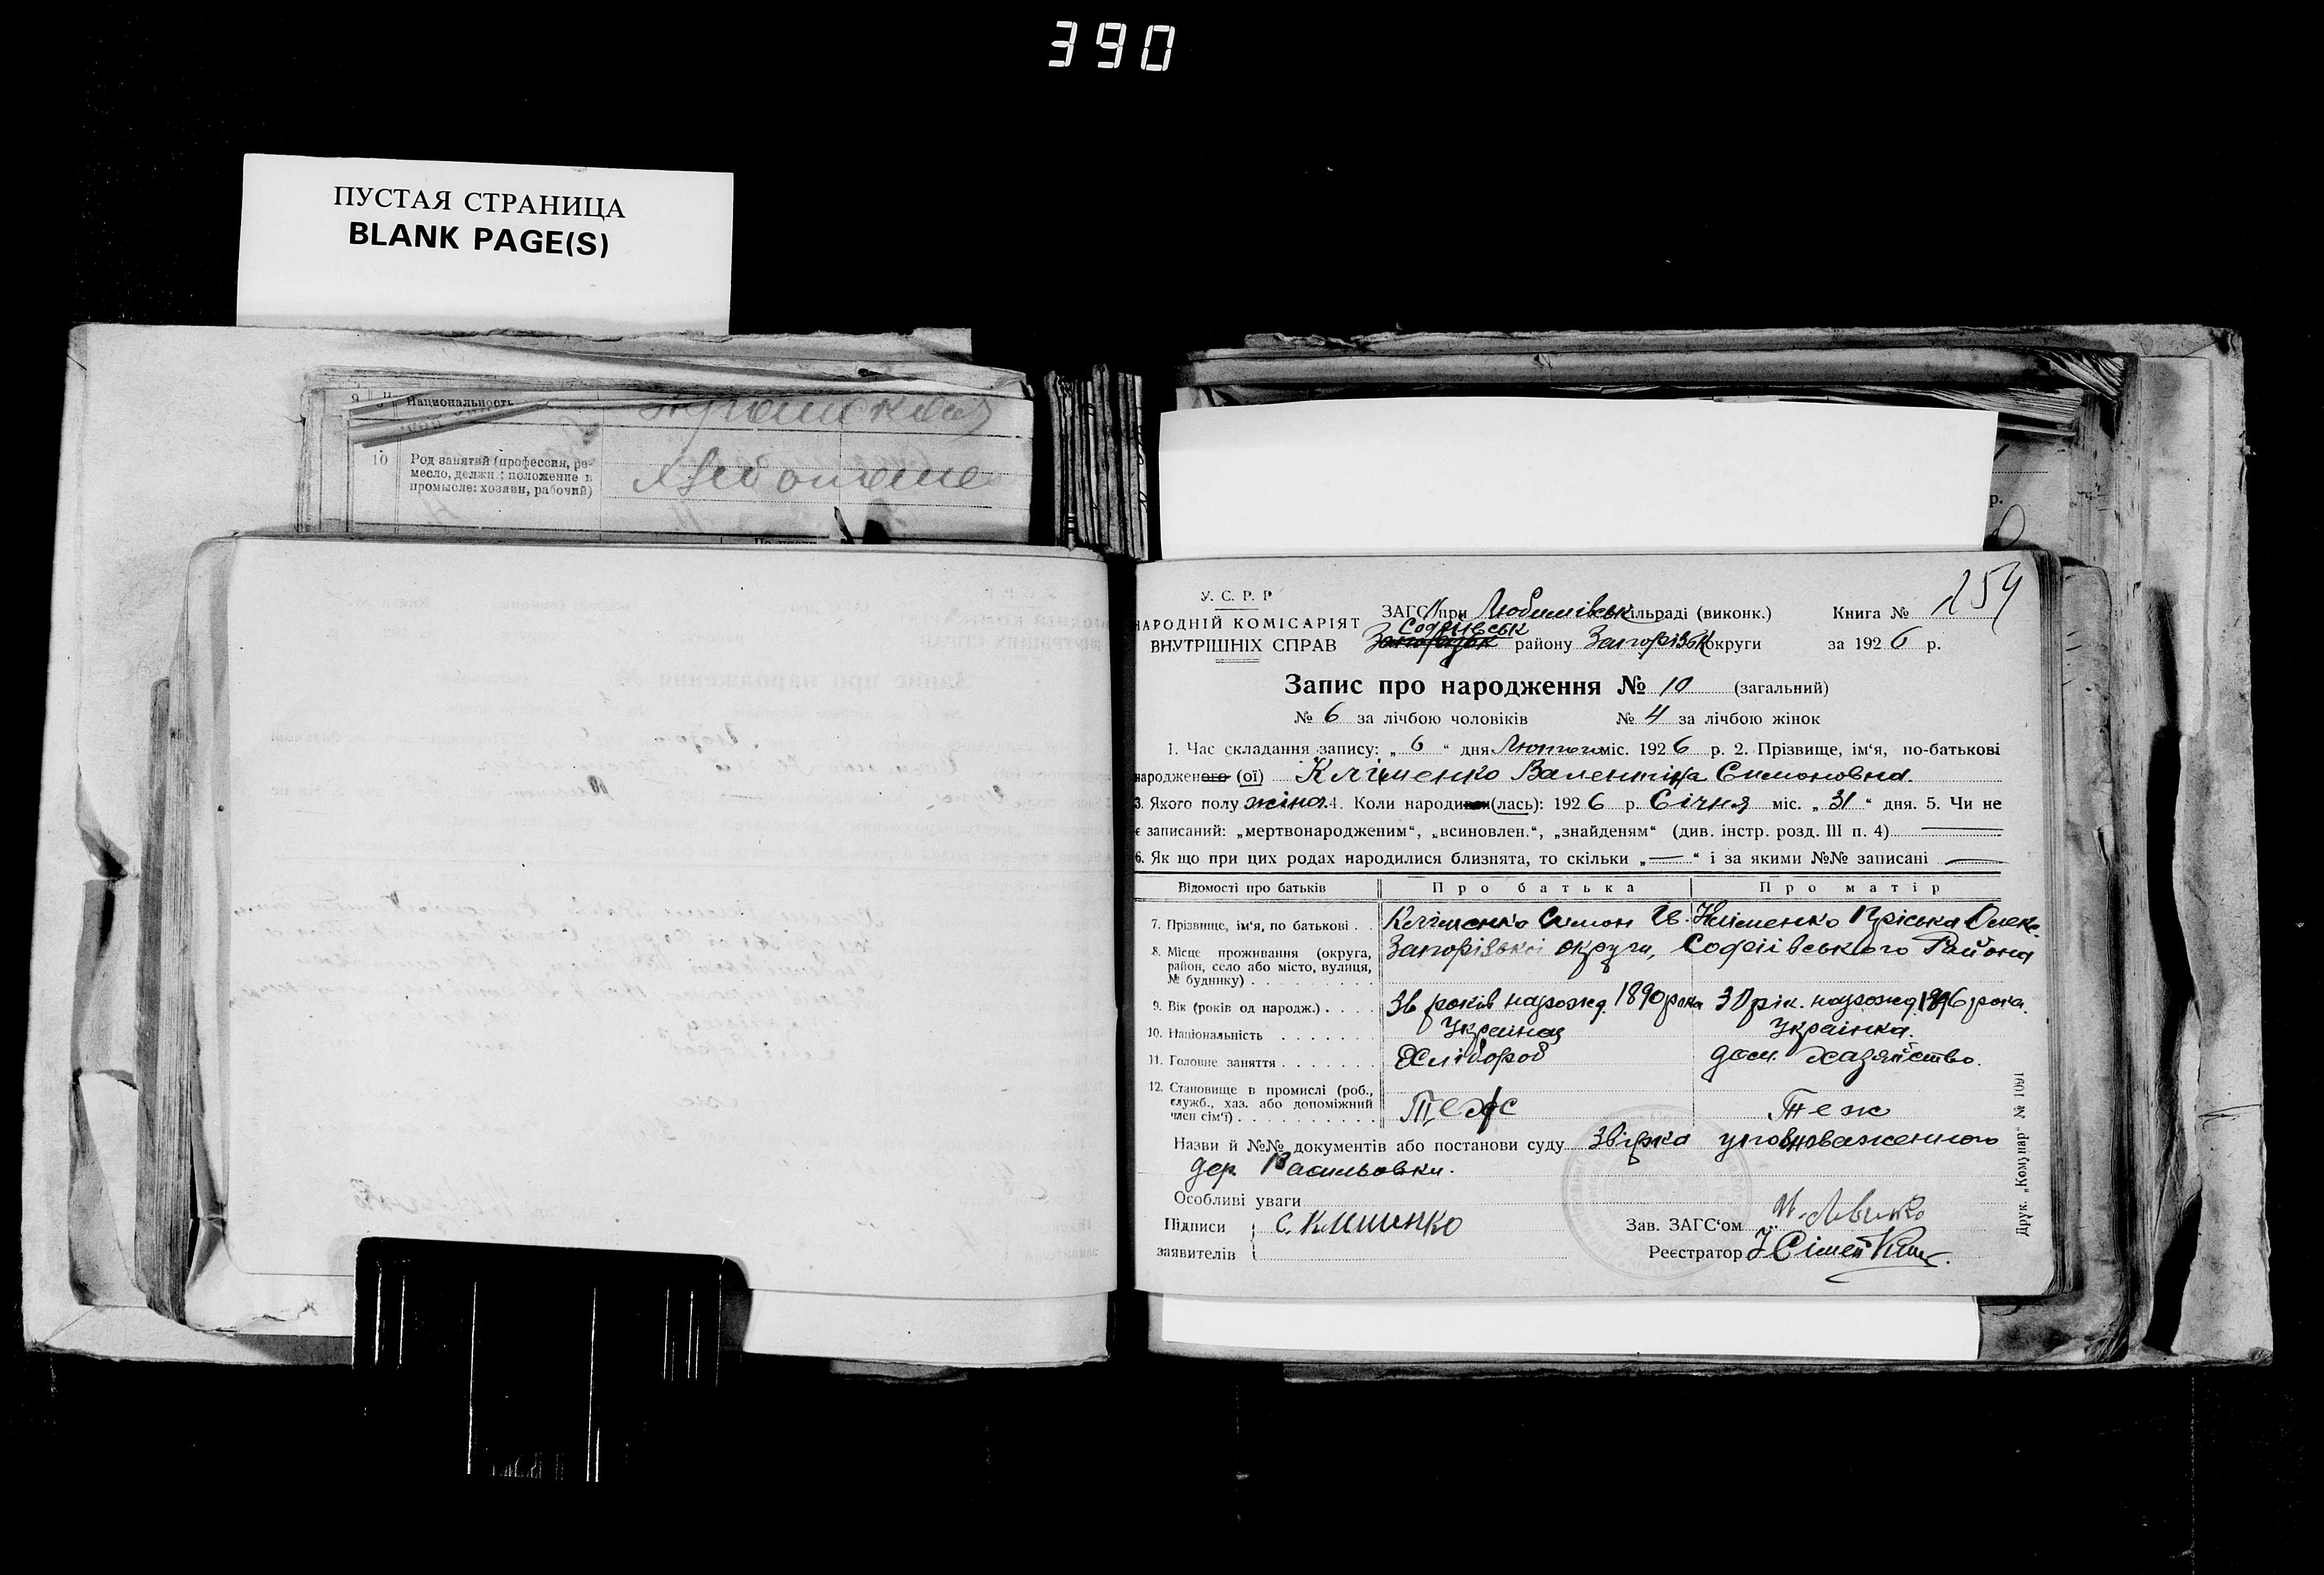 390
ПУСТАЯ СТРАНИЦА
BLANK PAGE(S)
9 Национальность
10 Род занятий (профессия, ре-
месло, должн.: положение в
промысле: хозяин, рабочий)
р.
254
У. С. Р. Р
НАРОДНІЙ КОМІСАРІЯТ
ВНУТРІШНІХ СПРАВ
ЗАГС при Любимівськ сільраді (виконк.) Книга №
Софіївськ
Запорізьк району Запорізьк округи за 1926 р.
Запис про народження № 10 (загальний)
№ 6 за лічбою чоловіків № 4 за лічбою жінок
1. Час складання запису: „ 6 “ дня Лютого міс. 1926 р. 2. Прізвище, ім‘я, по-батькові
народженого (ої) Кліменко Валентіна Симоновна.
3. Якого полу жіноч. 4. Коли народився (лась): 1926 р. Січня міс. „ 31 “ дня. 5. Чи не
є записаний: „мертвонародженим“, „всиновлен.“, „знайденям“ (див. інстр. розд. III п. 4)
6. Як що при цих родах народилися близнята, то скільки „ — “ і за якими №№ записані —
Відомості про батьків Про батька Про матір
7. Прізвище, ім‘я, по батькові . . Кліменко Симон Ів. Кліменко Пріська Олекс.
8. Місце проживання (округа, Запорізькоі округи, Софіівського Района
район, село або місто, вулиця,
№ будинку) . . . . . . . . .
9. Вік (років од народж.) . . . . 36 років нарожд. 1890 рока 30 рік. нарожд. 1896 рока.
10. Національність . . . . . . . Украінец Украінка.
11. Головне заняття . . . . . . . Хлібороб дом. хазяйство.
12. Становище в промислі (роб.,
служб., хаз. або допоміжний Теж Теж
член сім‘ї) . . . . . . . . . .
Назви й №№ документів або постанови суду Звірка уповноваженного
дер. Васильовки.
Особливі уваги
Підписи С. Клименко Зав. ЗАГС‘ом
заявителів Реєстратор
Друк. „Комунар“ № 1091